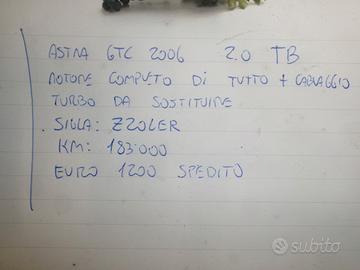 ASTRA GTC 2006 2.0 TB
MOTORE COMPLETO DI TUTTO + CABLAGGIO
TURBO DA SOSTITUIRE
SIGLA: Z20LER
KM: 183.000
EURO 1200 SPEDITO
subito